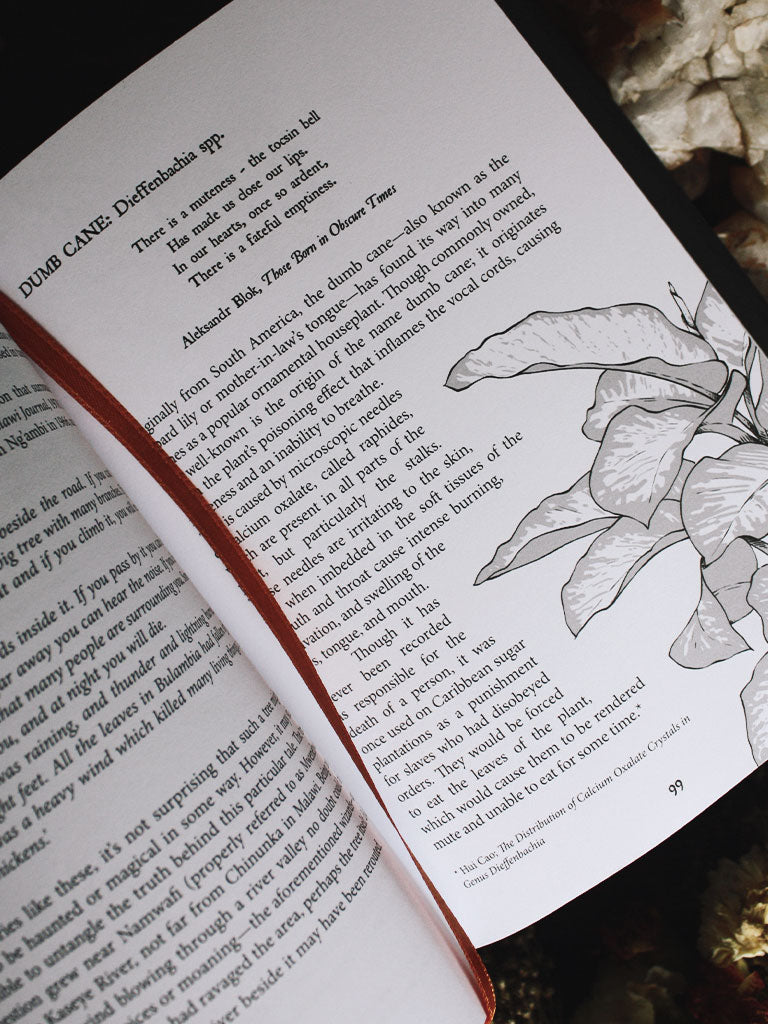 on that
awi Journal,
N'Gambi in
beside the road. If you
big tree with many branches,
t and if you climb it, you
ds inside it. If you pass by it you
ar away you can hear the noise. If
hat many people are surrounding you,
u, and at night you will die.
was raining, and thunder and lightning
ght feet. All the leaves in Bulambia had
as a heavy wind which killed many living
hickens.'
ies like these, it's not surprising that such a tree
be haunted or magical in some way. However, it
ble to untangle the truth behind this particular tale.
ention grew near Namwafi (properly referred to as
Kaseye River, not far from Chinunka in Malawi.
ind blowing through a river valley no doubt
oices or moaning—the aforementioned
had ravaged the area, perhaps the tree
iver beside it may have been
DUMB CANE: Dieffenbachia spp.
There is a muteness - the tocsin bell
Has made us close our lips.
In our hearts, once so ardent,
There is a fateful emptiness.
Aleksandr Blok, Those Born in Obscure Times
ginally from South America, the dumb cane—also known as the
ard lily or mother-in-law's tongue—has found its way into many
es as a popular ornamental houseplant. Though commonly owned,
well-known is the origin of the name dumb cane; it originates
the plant's poisoning effect that inflames the vocal cords, causing
ness and an inability to breathe.
is caused by microscopic needles
alcium oxalate, called raphides,
h are present in all parts of the
t, but particularly the stalks.
se needles are irritating to the skin,
when imbedded in the soft tissues of the
uth and throat cause intense burning,
vation, and swelling of the
s, tongue, and mouth.
Though it has
ever been recorded
s responsible for the
death of a person, it was
once used on Caribbean sugar
plantations as a punishment
for slaves who had disobeyed
orders. They would be forced
to eat the leaves of the plant,
which would cause them to be rendered
mute and unable to eat for some time.*
* Hui Cao; The Distribution of Calcium Oxalate Crystals in
Genus Dieffenbachia
99